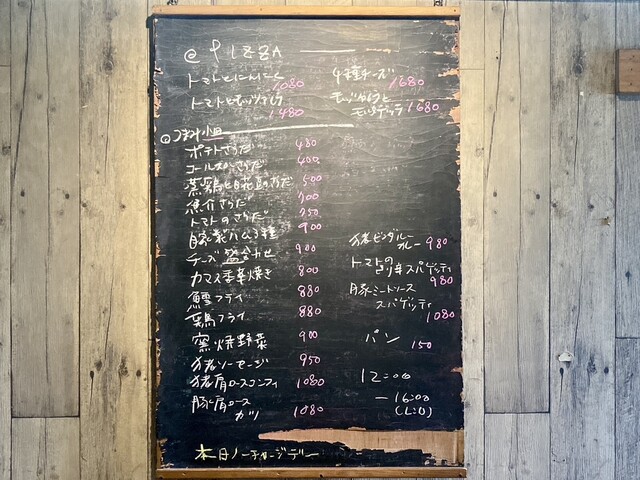 PIZZA
トマトとにんにく 1080
トマトとモッツァレラ 1480
4種チーズ 1680
モッツァレラと
モルタデッラ 1680
ポテトさらだ 480
コールスローさらだ 400
蒸鶏と白花豆のさらだ 500
魚介さらだ 700
トマトのさらだ 750
豚製ハム3種 900
チーズ盛合わせ 900
カマス香草焼き 800
鱈フライ 880
葉鶏フライ 880
窯焼野菜 900
猪ソーセージ 950
猪肩ロースコンフィ 1080
豚肩ロース
カツ 1080
猪ビンダルー
カレー 980
トマトの
辛スパゲッティ
980
豚ミートソース
スパゲッティ
1080
パン 150
12:00
—16:00
(L.O)
本日ノーチャージデー